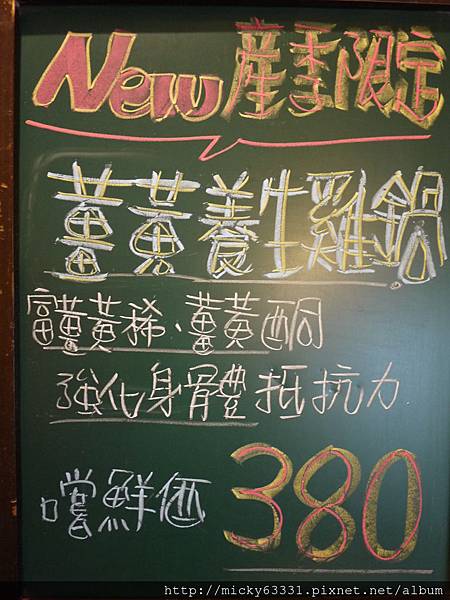 New 産季限定
薑黃養生雞鍋
富薑黃稀、薑黃酮
強化身體抵抗力
嚐鮮価 380
http://micky63331.pixnet.net/album